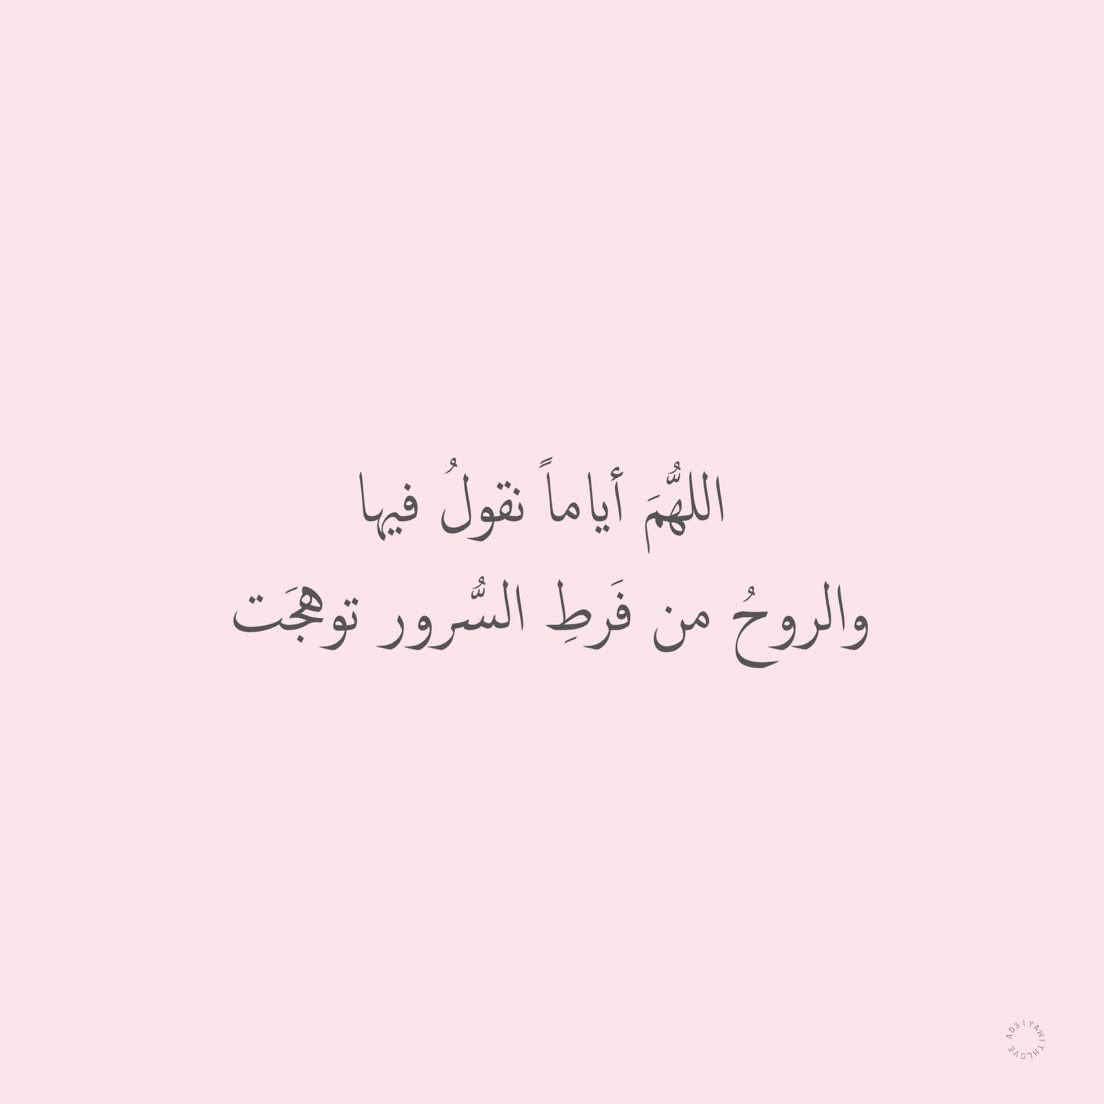 اللهُّمَ أياماً نقولُ فيها
والروحُ من فَرطِ السُّرور توهجَت
AD3IYAWITHLOVE